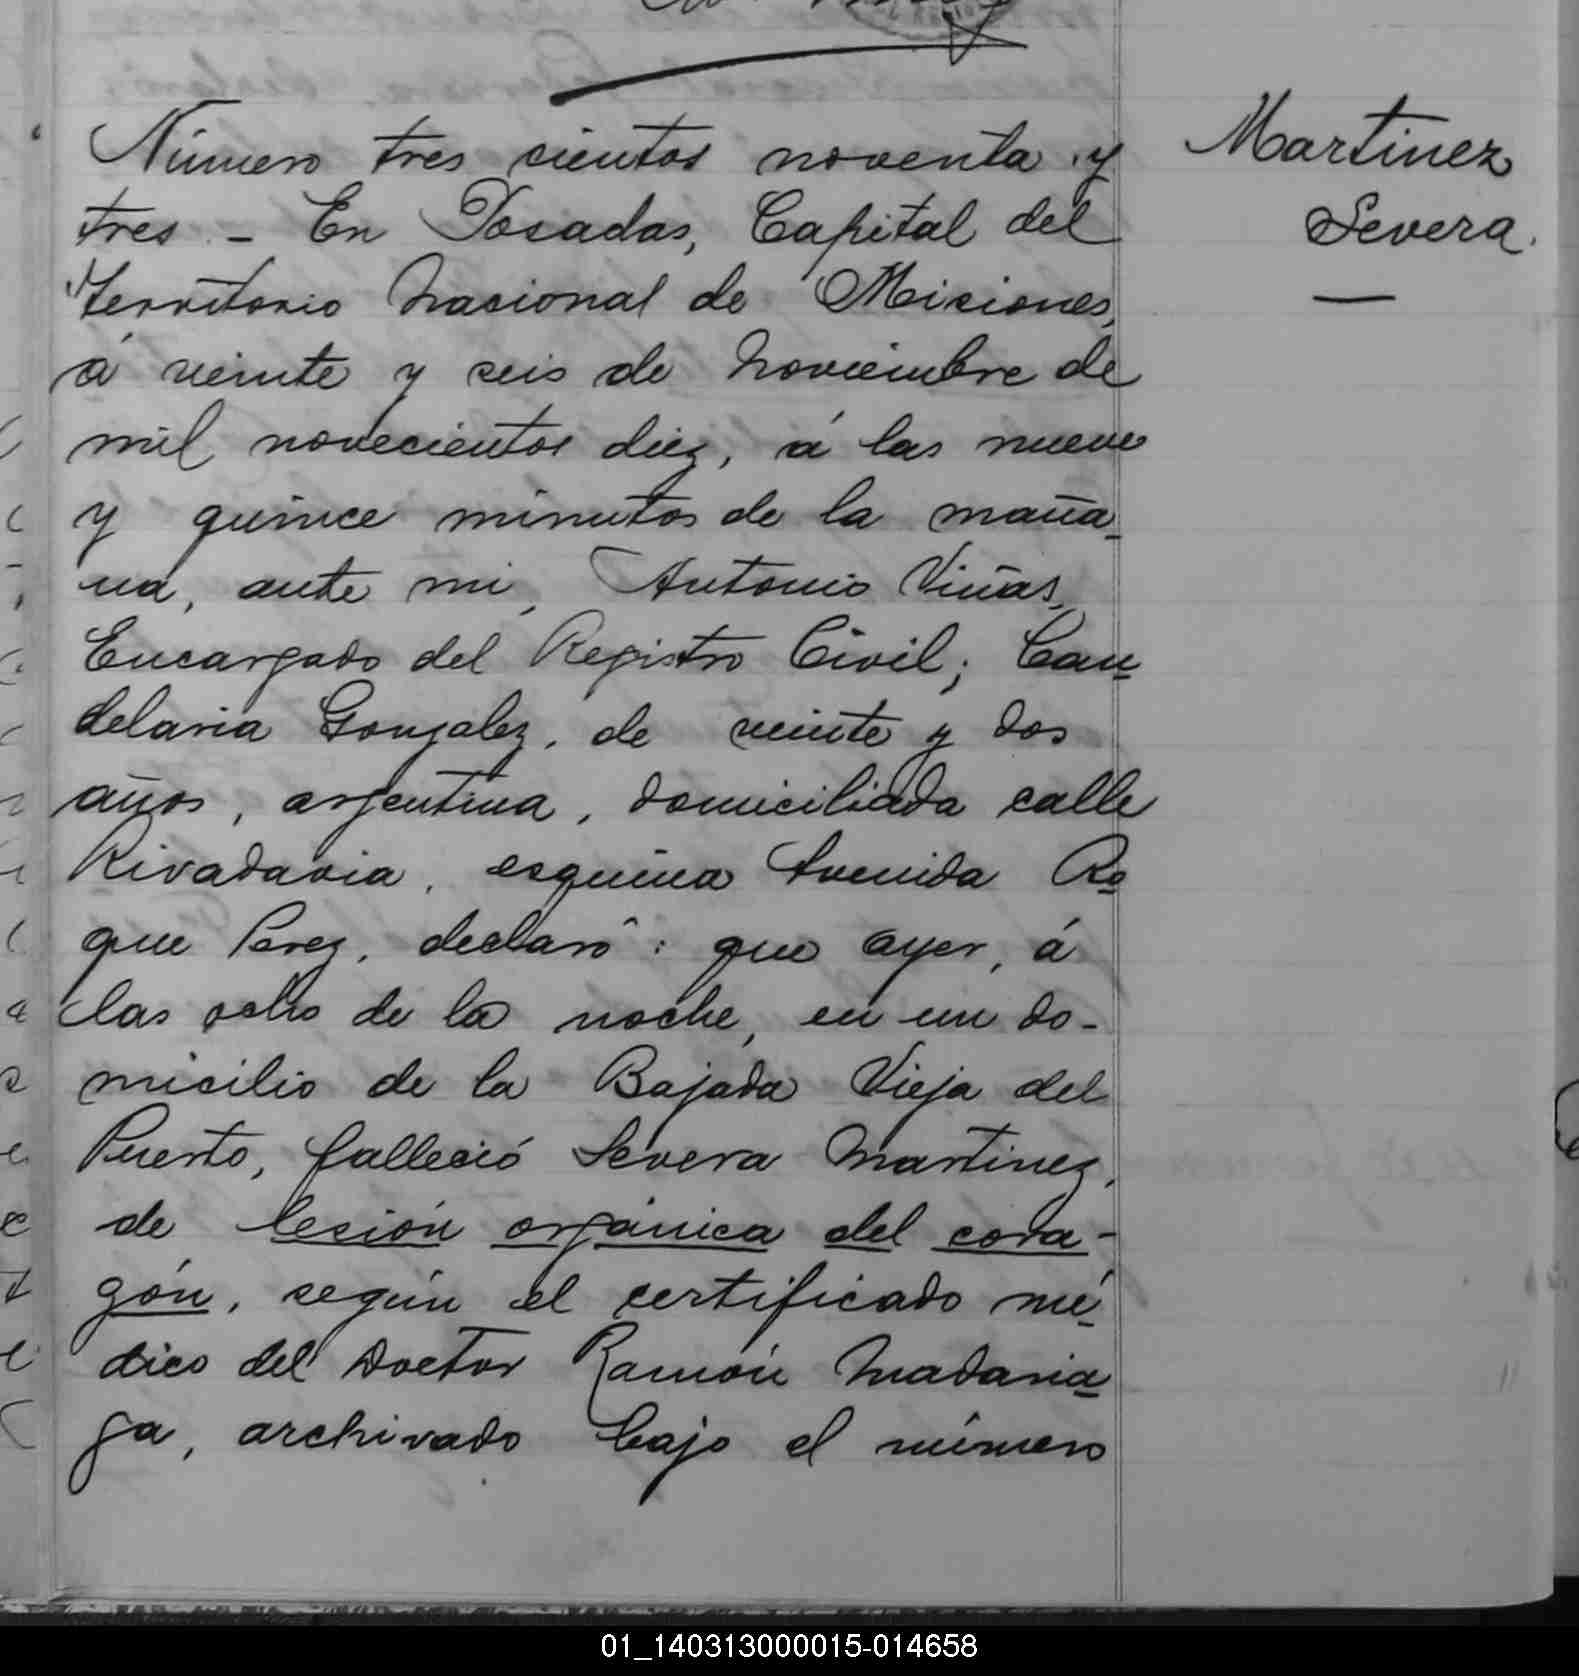 Número tres cientos noventa y
tres - En Posadas, Capital del
Territorio Nacional de Misiones,
á veinte y seis de Noviembre de
mil novecientos diez, á las nueve
y quince minutos de la maña-
na, ante mi, Antonio Viñas,
Encargado del Registro Civil; Can-
delaria Gonzalez, de veinte y dos
años, argentina, domiciliada calle
Rivadavia, esquina Avenida Ro-
que Perez, declaró: que ayer, á
las ocho de la noche, en un do-
micilio de la Bajada Vieja del
Puerto, falleció Severa Martinez,
de lesión orgánica del cora-
zón, según el certificado mé-
dico del Doctor Ramón Madaria-
ga, archivado bajo el número
Martinez
Severa.
01_140313000015-014658